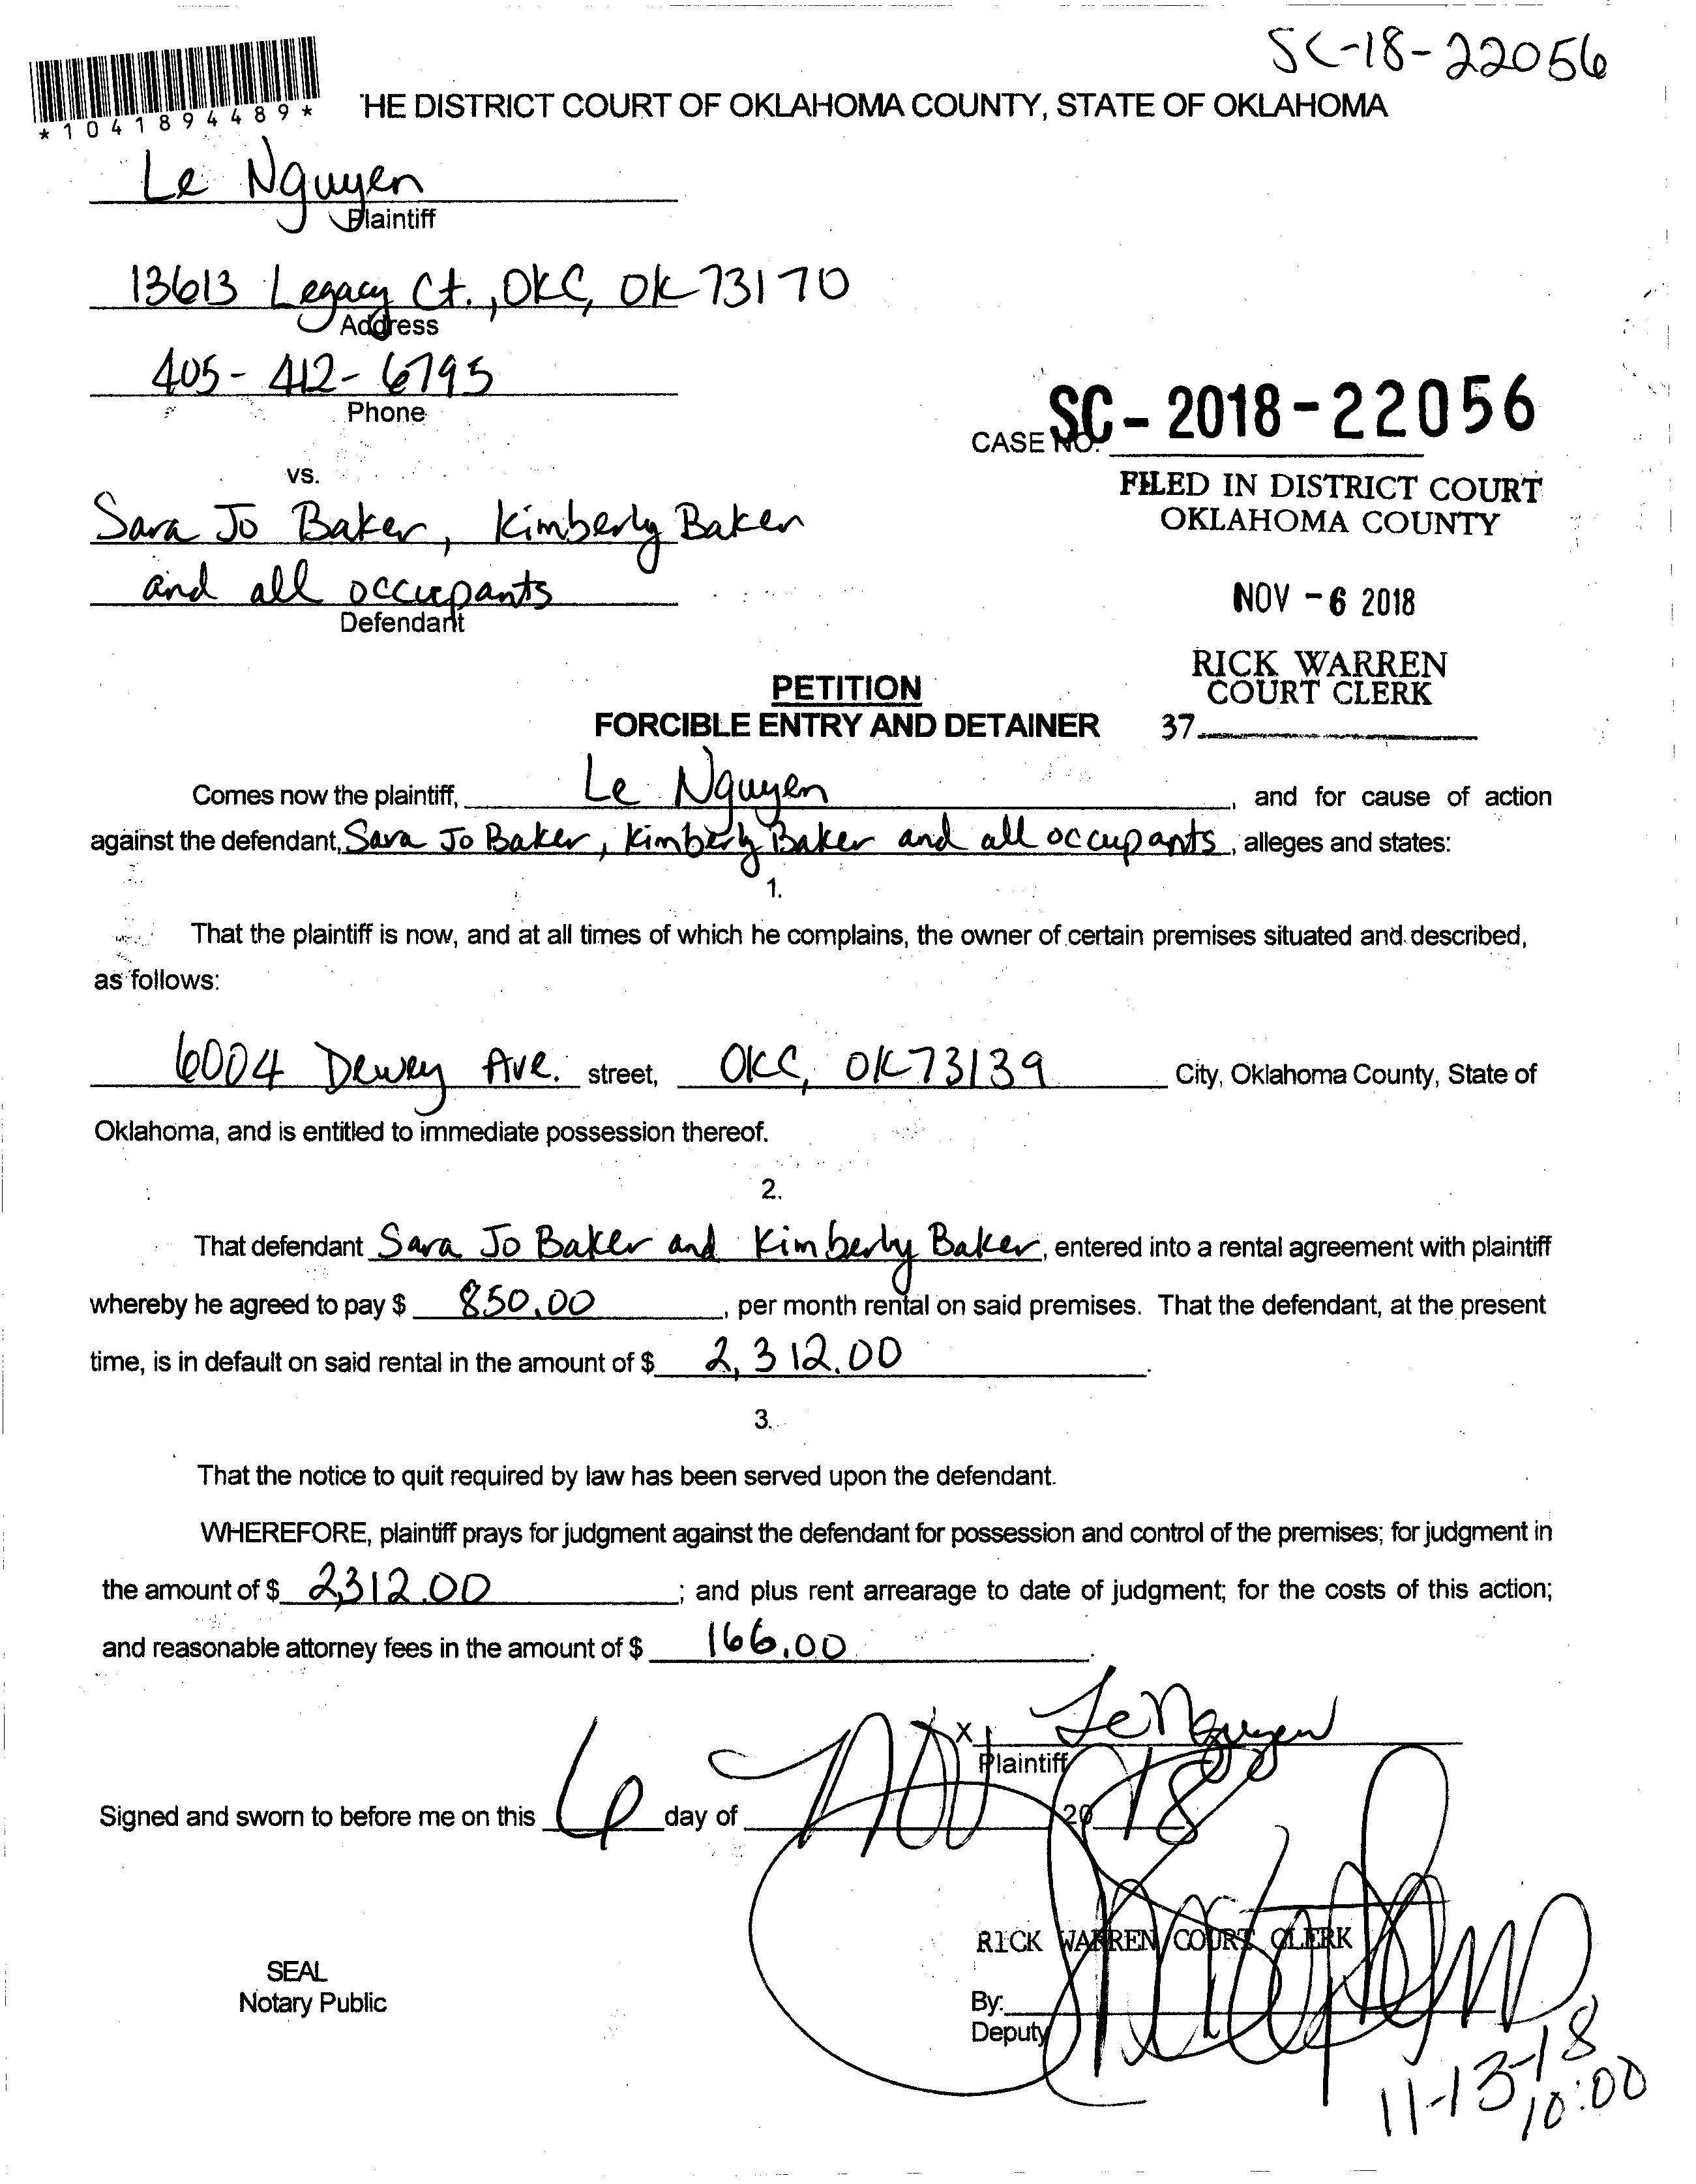 SC-18-22056
*1041894489*
'HE DISTRICT COURT OF OKLAHOMA COUNTY, STATE OF OKLAHOMA
Le Nguyen
Plaintiff
13613 Legacy Ct., OKC, OK 73170
Address
405-412-6795
Phone
CASE NO. SC-2018-22056
vs.
FILED IN DISTRICT COURT
OKLAHOMA COUNTY
Sara Jo Baker, Kimberly Baker
and all occupants
Defendant
NOV -6 2018
RICK WARREN
COURT CLERK
37
PETITION
FORCIBLE ENTRY AND DETAINER
Comes now the plaintiff, Le Nguyen, and for cause of action
against the defendant, Sara Jo Baker, Kimberly Baker and all occupants, alleges and states:
1.
That the plaintiff is now, and at all times of which he complains, the owner of certain premises situated and described,
as follows:
6004 Dewey Ave. street, OKC, OK 73139 City, Oklahoma County, State of
Oklahoma, and is entitled to immediate possession thereof.
2.
That defendant Sara Jo Baker and Kimberly Baker, entered into a rental agreement with plaintiff
whereby he agreed to pay $ 850.00, per month rental on said premises. That the defendant, at the present
time, is in default on said rental in the amount of $ 2,312.00.
3.
That the notice to quit required by law has been served upon the defendant.
WHEREFORE, plaintiff prays for judgment against the defendant for possession and control of the premises; for judgment in
the amount of $ 2,312.00; and plus rent arrearage to date of judgment; for the costs of this action;
and reasonable attorney fees in the amount of $ 166.00.
X Le Nguyen
Plaintiff
Signed and sworn to before me on this 6 day of NOV 20 18
RICK WARREN COURT CLERK
SEAL
Notary Public
By:
Deputy
11-13-18
10:00